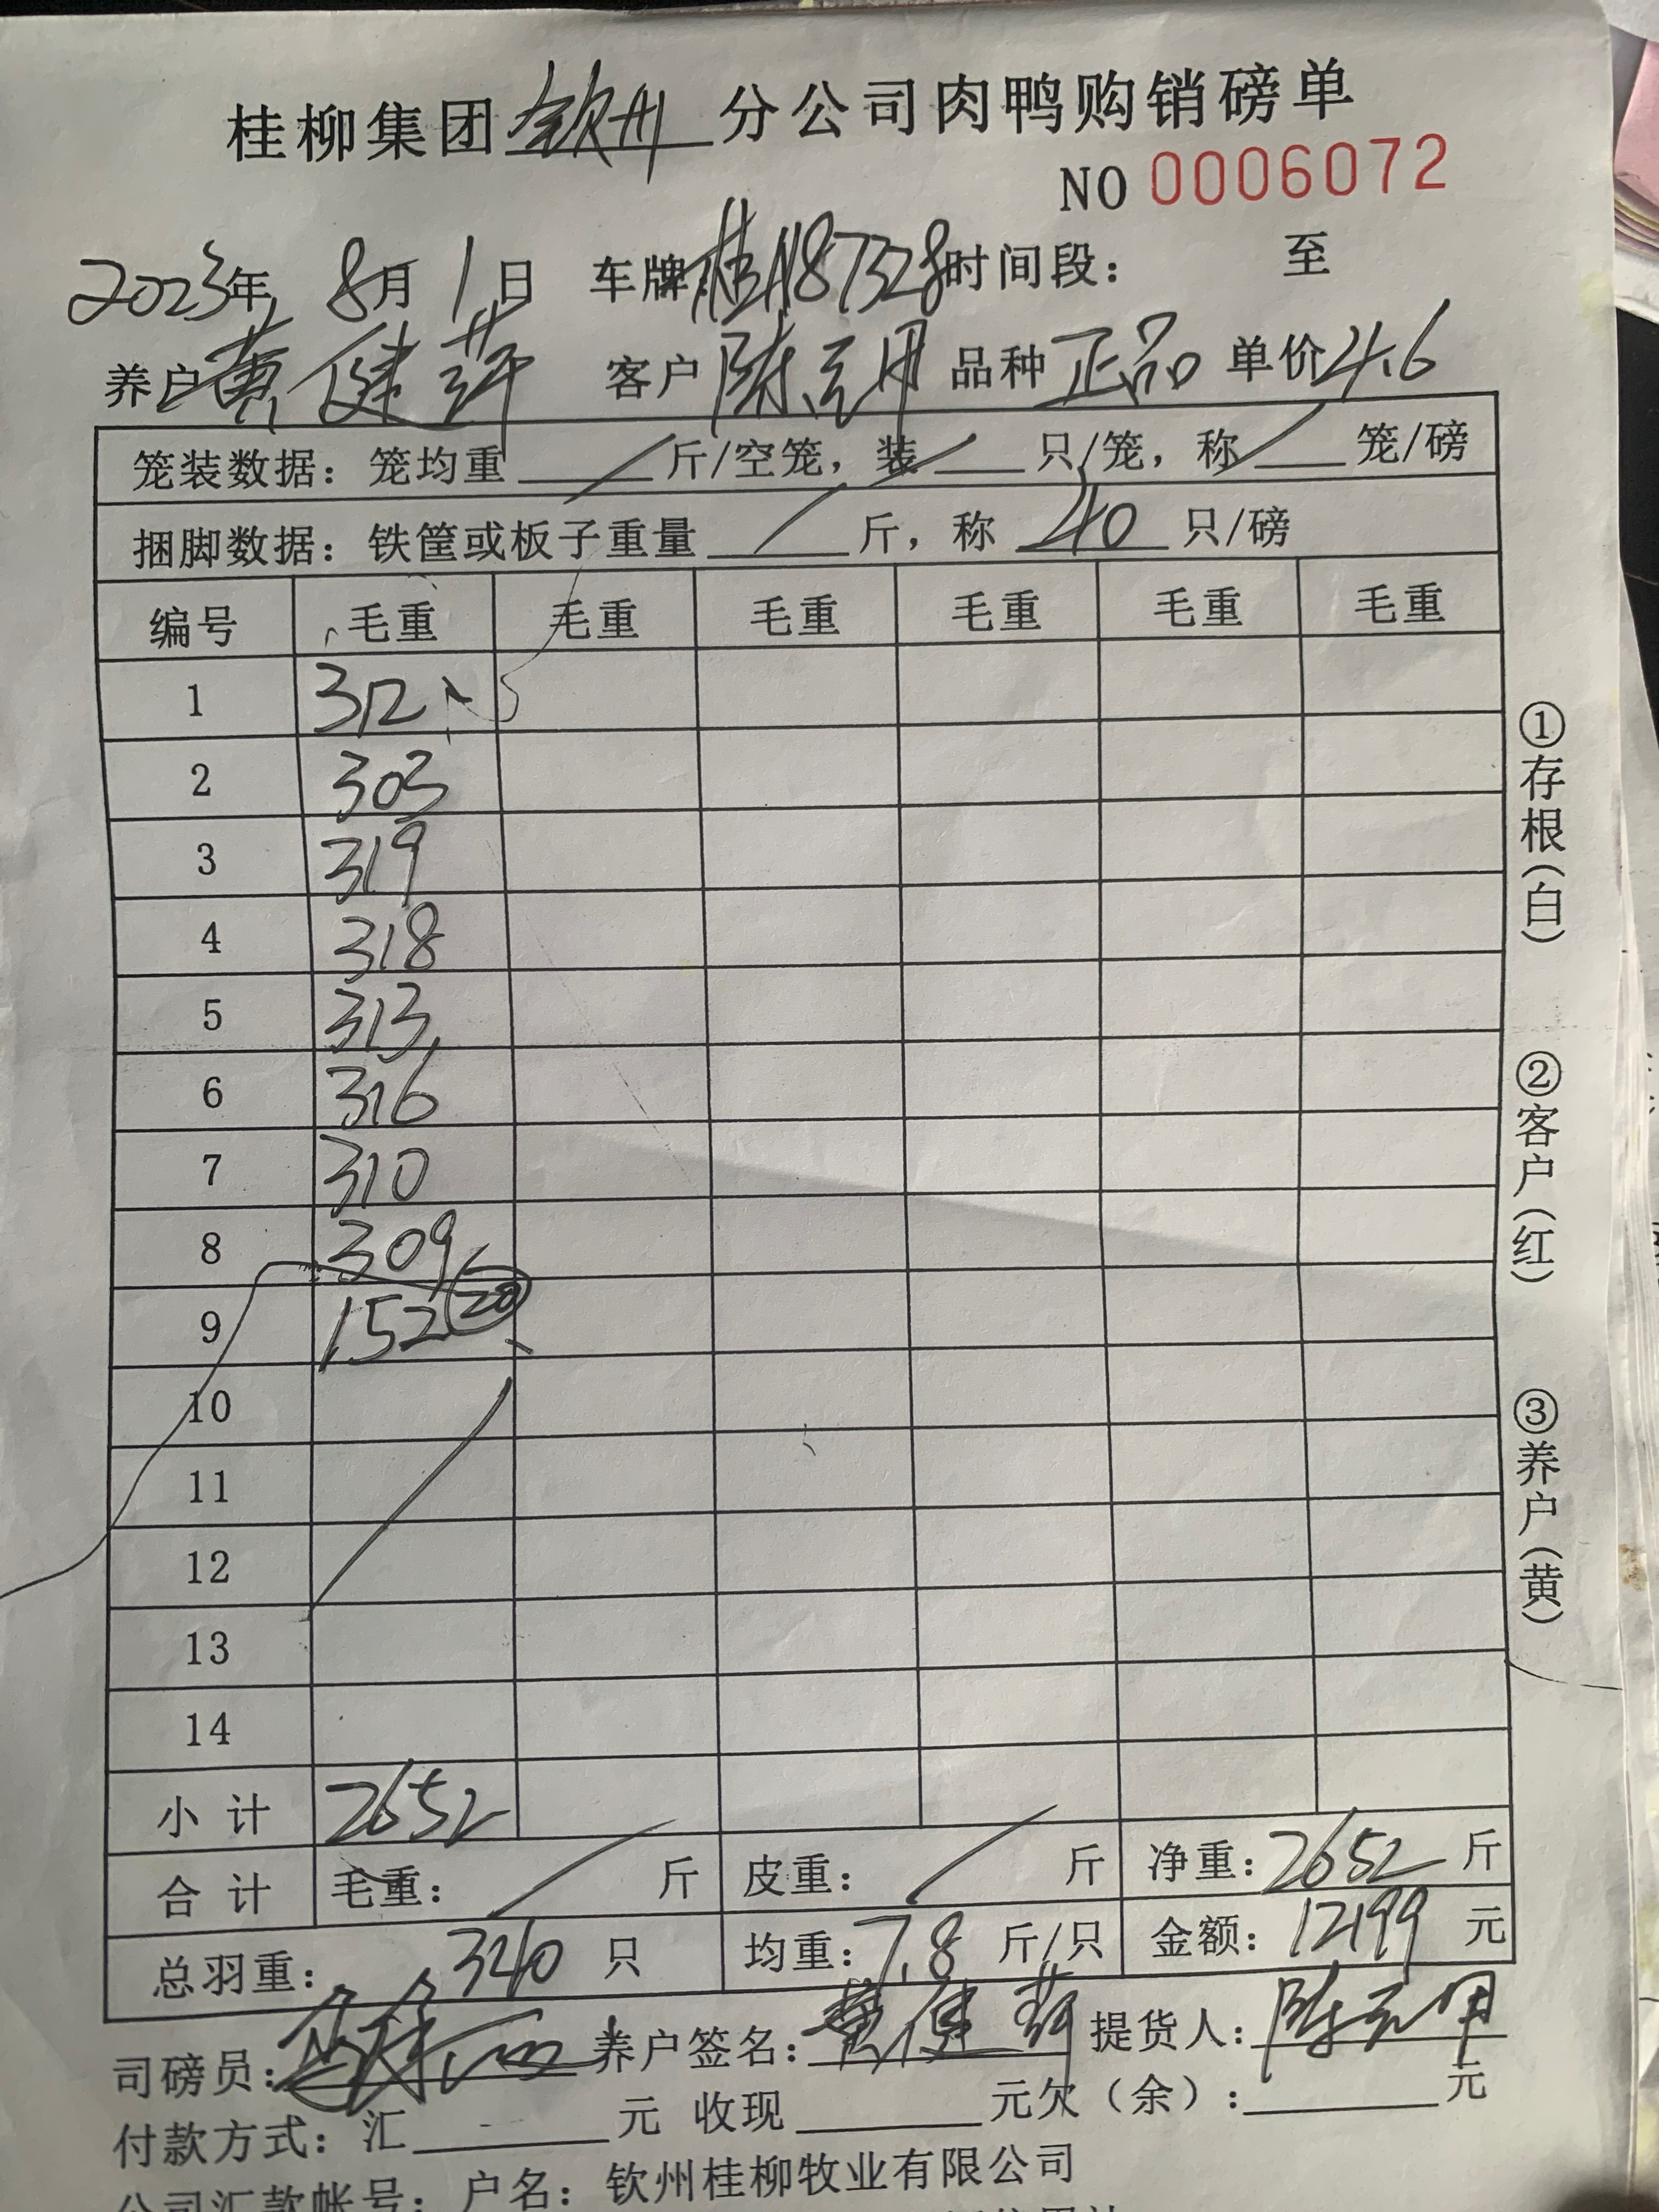 桂柳集团钦州分公司肉鸭购销磅单
NO 0006072
2023年 8月 1日 车牌:桂A87328 时间段: 至
养户 黄健 客户 陈 品种 正品 单价 4.6
笼装数据: 笼均重 / 斤/空笼, 装 / 只/笼, 称 / 笼/磅
捆脚数据: 铁筐或板子重量 / 斤, 称 40 只/磅
编号 毛重 毛重 毛重 毛重 毛重 毛重
1 312
2 303
3 319
4 318
5 313
6 316
7 310
8 309
9 152 (20)
10
11
12
13
14
小计 2652
合计 毛重: / 斤 皮重: / 斤 净重: 2652 斤
总羽重: 340 只 均重: 7.8 斤/只 金额: 12199 元
司磅员: 养户签名: 黄健 提货人: 陈
付款方式: 汇 元 收现 元欠(余): 元
公司汇款帐号: 户名: 钦州桂柳牧业有限公司
①存根(白)
②客户(红)
③养户(黄)